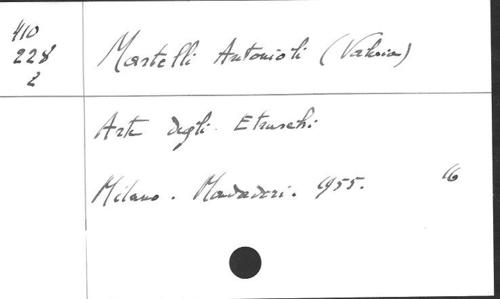 410
228
2
Martelli Antonioli (Valeria)
Arte degli Etruschi
Milano. Mondadori. 1955.
16